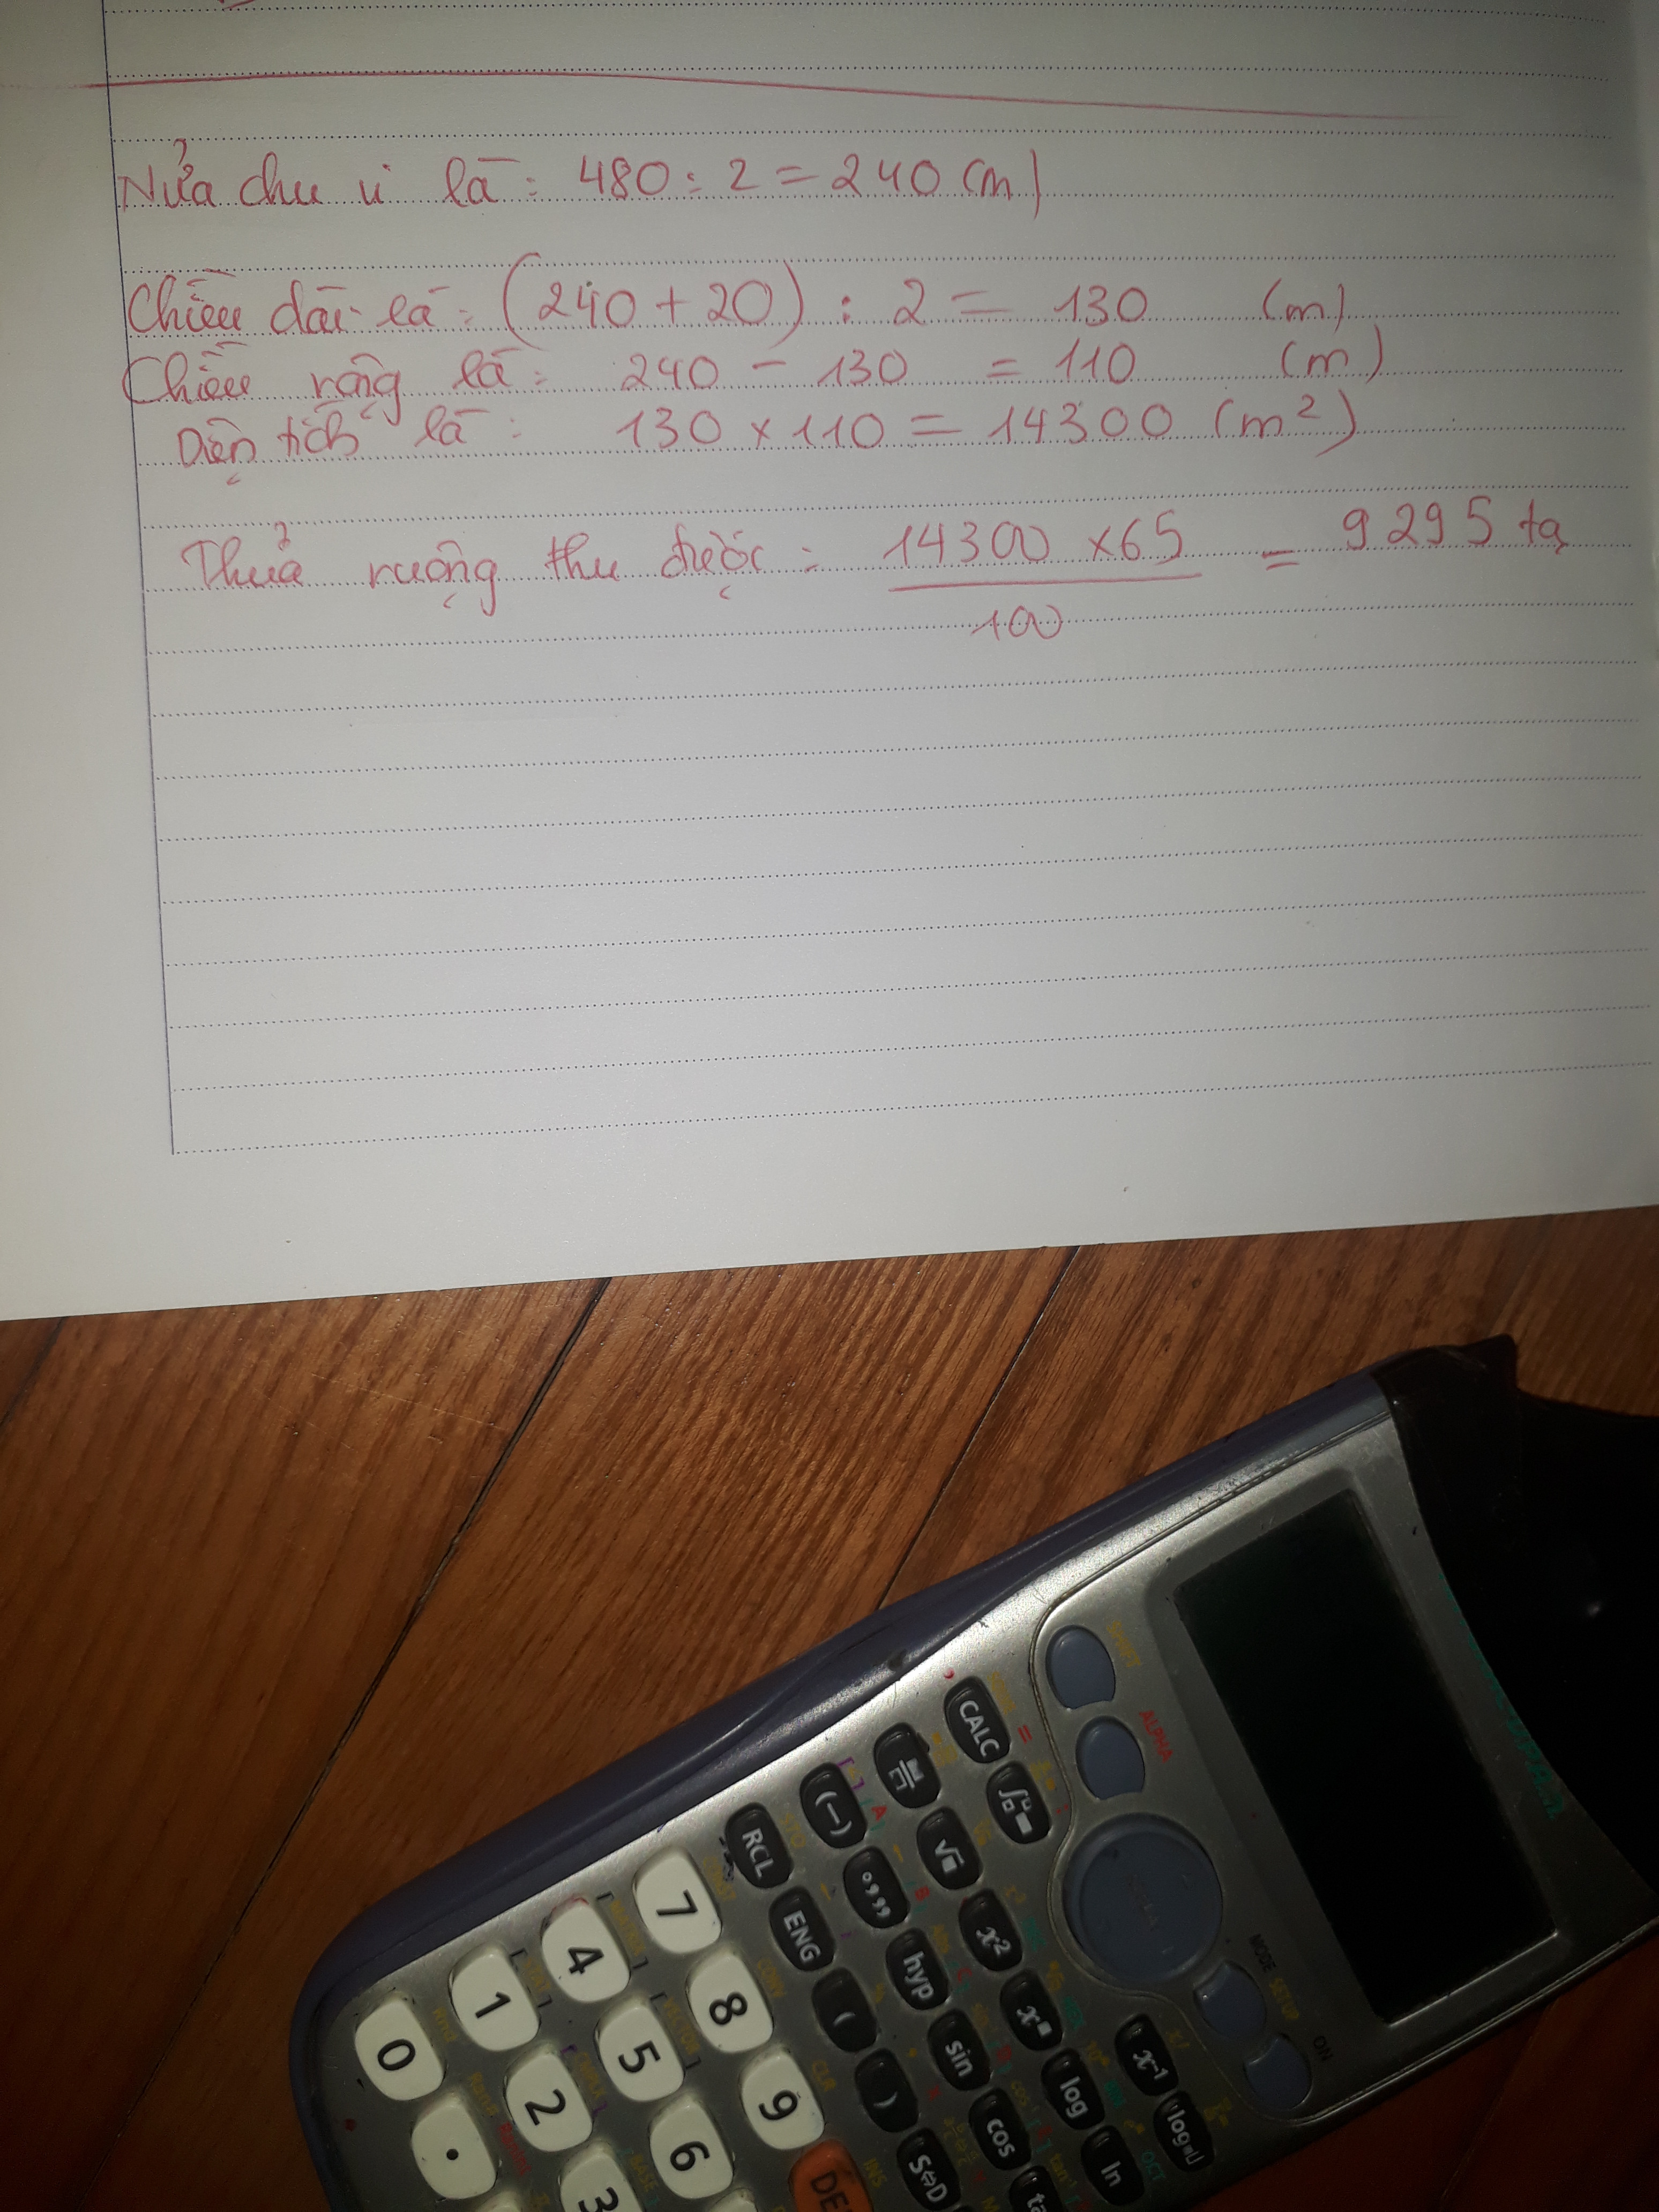 Nửa chu vi là: 480 : 2 = 240 (m)
Chiều dài là: (240 + 20) : 2 = 130 (m)
Chiều rộng là: 240 - 130 = 110 (m)
Diện tích là: 130 x 110 = 14300 (m²)
Thửa ruộng thu được: 14300 x 65 = 9295 tạ
100
SHIFT
ALPHA
MODE SETUP
ON
CALC
x-1
log
√
x²
x
log
ln
(-)
hyp
sin
cos
RCL
ENG
(
)
S⇔D
7
8
9
DE
4
5
6
1
2
3
0
.